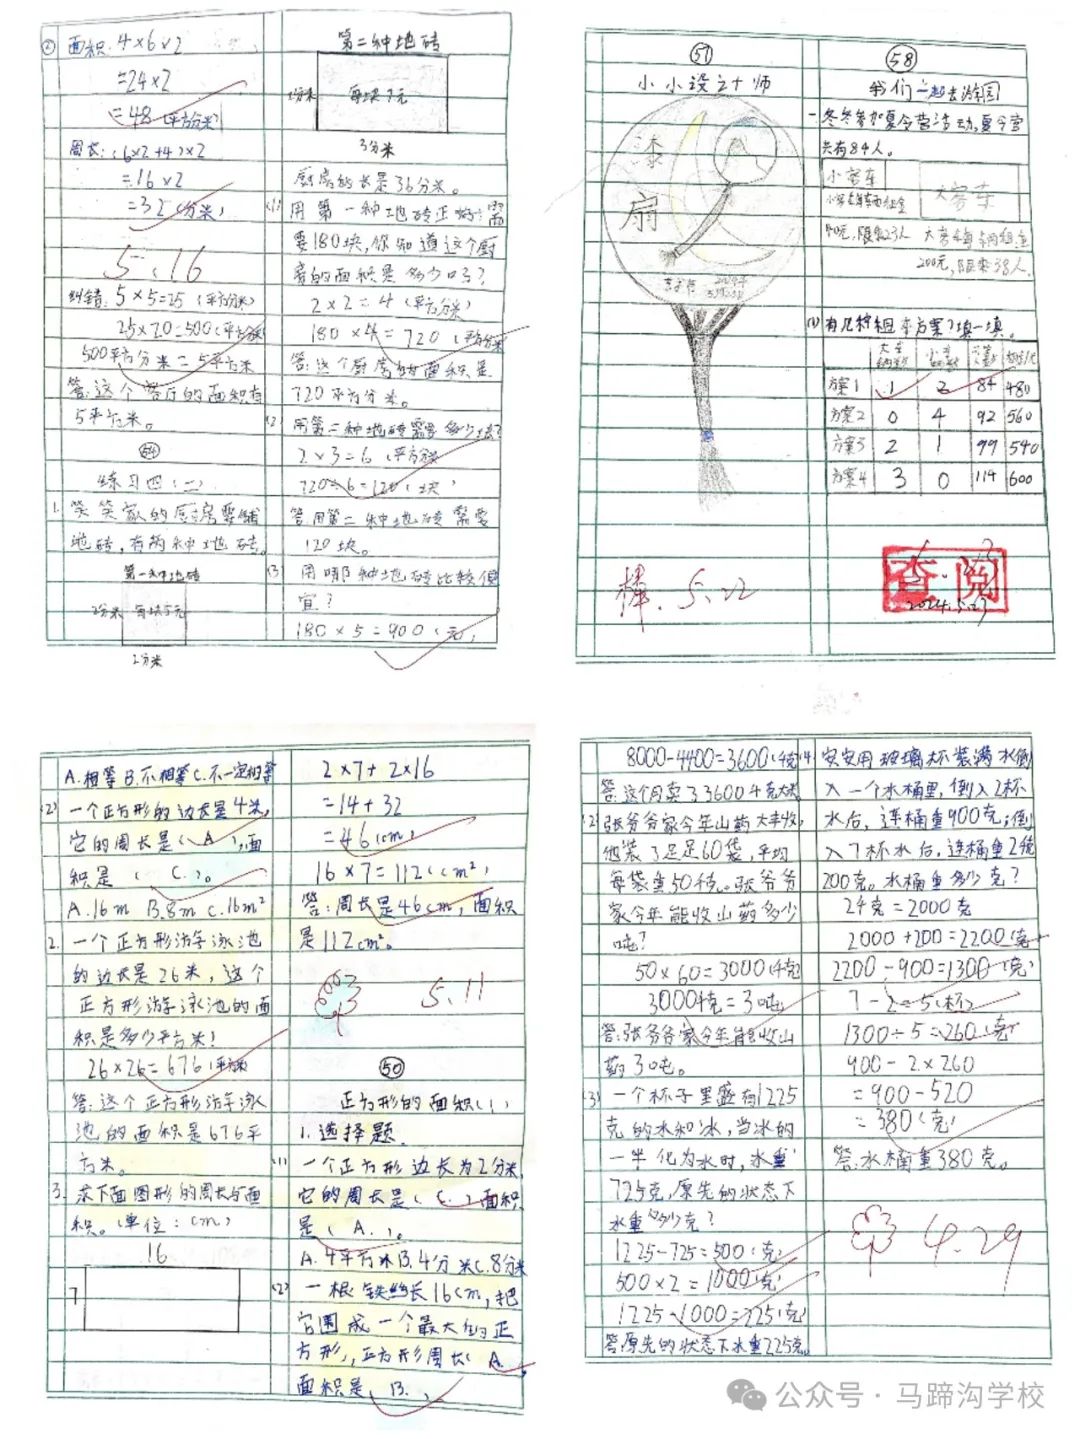 ② 面积:4×6×2
=24×2
=48(平方分米)
周长:(6×2+4)×2
=16×2
=32(分米)
5.16
纠错:5×5=25(平方分米)
25×20=500(平方分米)
500平方分米=5平方米
答:这个客厅的面积有
5平方米。
练习四(二)
1. 笑笑家的厨房要铺
地砖,有两种地砖。
第一种地砖
2分米 每块5元
2分米
第二种地砖
2分米 每块7元
3分米
厨房的长是36分米。
(1) 用第一种地砖正好需
要180块,你知道这个厨
房的面积是多少吗?
2×2=4(平方分米)
180×4=720(平方分米)
答:这个厨房的面积是
720平方分米。
(2) 用第二种地砖需要多少块?
2×3=6(平方分米)
720÷6=120(块)
答:用第二种地砖需要
120块。
(3) 用哪种地砖比较便
宜?
180×5=900(元)
57
小小设计师
漆
扇
棒. 5.22
58
我们一起去游园
一 冬冬参加夏令营活动,夏令营
共有84人。
小客车
大客车
200元,限乘38人.
(1) 有几种租车方案?填一填。
方案1 1 2 84 480
方案2 0 4 92 560
方案3 2 1 99 540
方案4 3 0 114 600
查阅
2024.5.27
A.相等 B.不相等 C.不一定相等
(2) 一个正方形的边长是4米,
它的周长是( A ),面
积是( C )。
A.16m B.8m C.16m²
2. 一个正方形游泳池
的边长是26米,这个
正方形游泳池的面
积是多少平方米?
26×26=676(平方米)
答:这个正方形游泳
池的面积是676平
方米。
3. 求下面图形的周长与面
积。(单位:cm)
16
7
2×7+2×16
=14+32
=46(cm)
16×7=112(cm²)
答:周长是46cm,面积
是112cm²。
5.11
50
正方形的面积(1)
1.选择题.
(1) 一个正方形边长为2分米,
它的周长是( C. )面积
是( A. )。
A.4平方分米 B.4分米 C.8分米
(2) 一根铁丝长16cm,把
它围成一个最大的正
方形,正方形周长( A.
面积是( B. )
8000-4400=3600(千克)
答:这个月卖了3600千克大米
(2) 张爷爷家今年山药大丰收,
他装了足足60袋,平均
每袋重50千克。张爷爷
家今年能收山药多少
吨?
50×60=3000(千克)
3000千克=3吨
答:张爷爷家今年能收山
药3吨。
(3) 一个杯子里盛有1225
克的水和冰,当冰的
一半化为水时,水重
725克,原先的状态下
水重多少克?
1225-725=500(克)
500×2=1000(克)
1225-1000=225(克)
答:原先的状态下水重225克。
(4) 安安用玻璃杯装满水倒
入一个水桶里,倒入2杯
水后,连桶重900克;倒
入7杯水后,连桶重2千克
200克。水桶重多少克?
2千克=2000克
2000+200=2200(克)
2200-900=1300(克)
7-2=5(杯)
1300÷5=260(克)
900-2×260
=900-520
=380(克)
答:水桶重380克。
4.29
公众号·马蹄沟学校